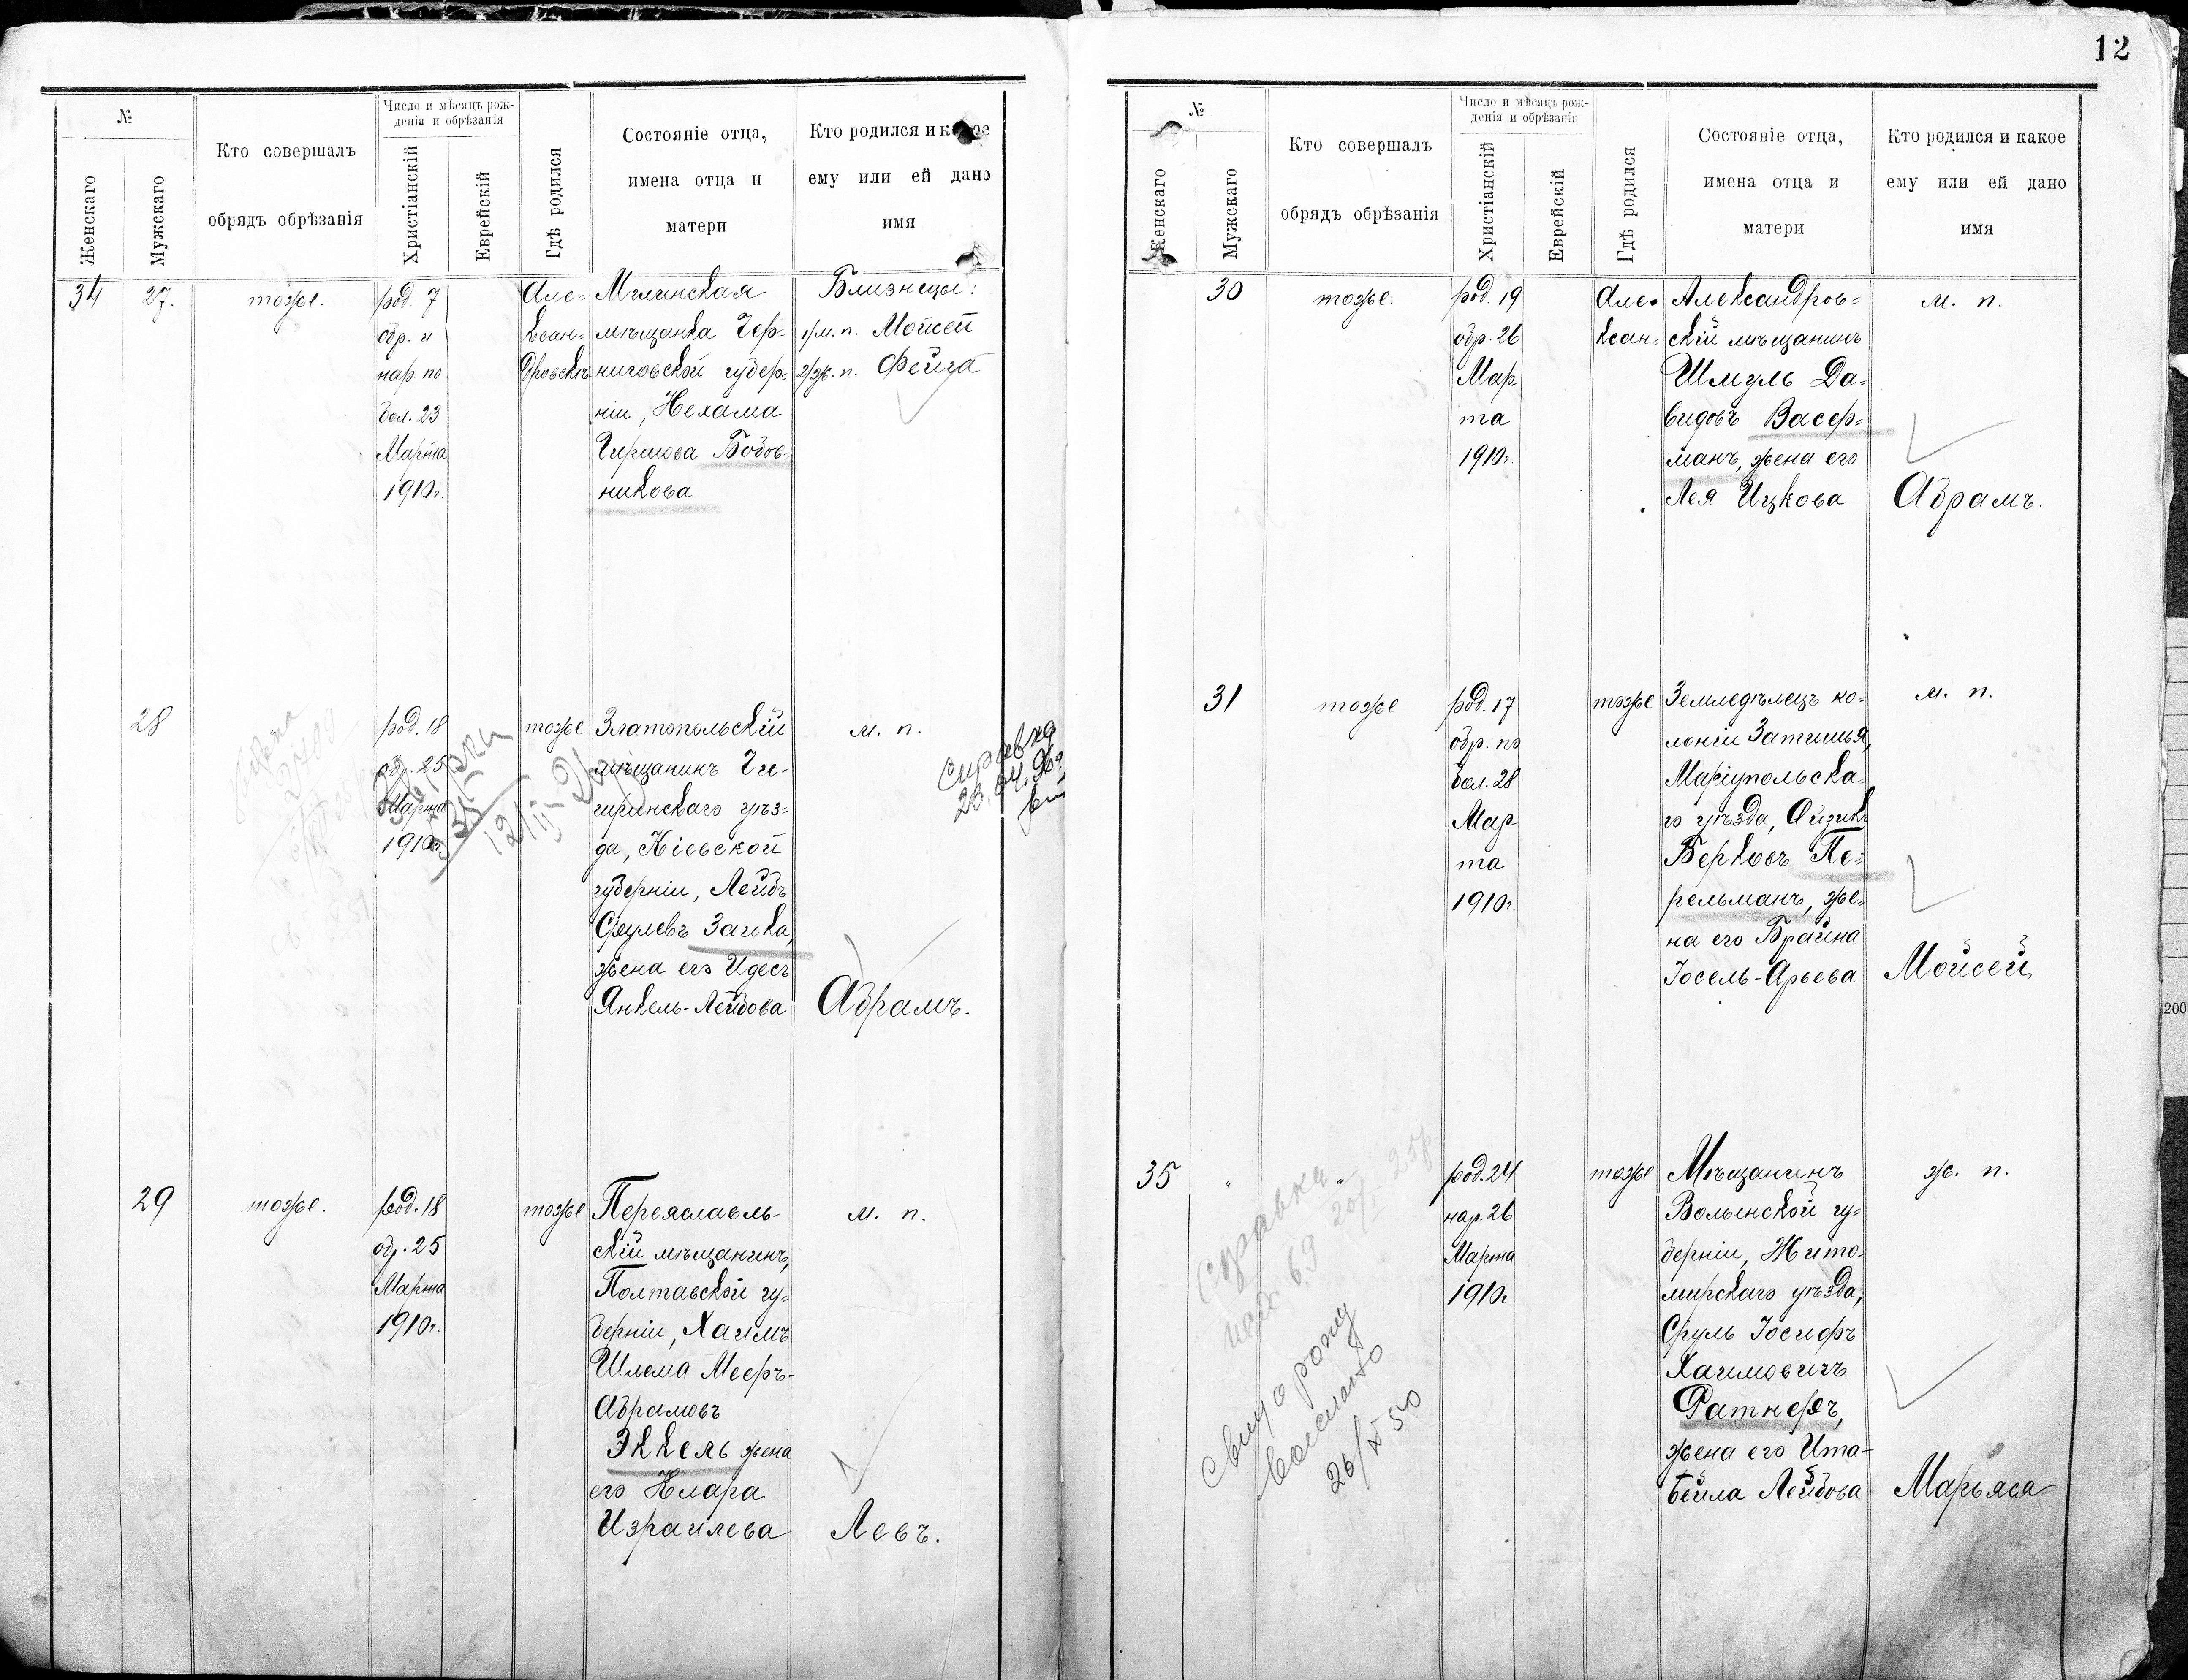 12
№
Женскаго
Мужскаго
Кто совершалъ
обрядъ обрѣзанія
Число и мѣсяцъ рож-
денія и обрѣзанія
Христіанскій
Еврейскій
Гдѣ родился
Состояніе отца,
имена отца и
матери
Кто родился и какое
ему или ей дано
имя
34
27.
тоже.
род. 7
обр. и
нар. по
бол. 23
Марта
1910г.
Але-
ксан-
дровскъ
Мглинская
мѣщанка Чер-
ниговской губер-
ніи, Нехама
Гиршова Бобов-
никова
Близнецы:
1/м. п. Мойсей
2/ж. п. Фейга
28
род. 18
обр. 25
Марта
1910г.
тоже
Златопольскій
мѣщанинъ Чи-
гиринскаго уѣз-
да, Кіевской
губерніи, Лейбъ
Срулевъ Заика,
жена его Идесъ
Янкель-Лейбова
м. п.
Абрамъ.
Справка
29
тоже.
род. 18
обр. 25
Марта
1910г.
тоже
Переяславль-
скій мѣщанинъ,
Полтавской гу-
берніи, Хаимъ
Шлема Мееръ-
Абрамовъ
Эккель жена
его Клара
Израилева
м. п.
Левъ.
№
Женскаго
Мужскаго
Кто совершалъ
обрядъ обрѣзанія
Число и мѣсяцъ рож-
денія и обрѣзанія
Христіанскій
Еврейскій
Гдѣ родился
Состояніе отца,
имена отца и
матери
Кто родился и какое
ему или ей дано
имя
30
тоже.
род. 19
обр. 26
Мар
та
1910г.
Але-
ксан-
Александров-
скій мѣщанинъ
Шмуль Да-
видовъ Васер-
манъ, жена его
Лея Ицкова
м. п.
Абрамъ.
31
тоже
род. 17
обр. по
бол. 28
Мар-
та
1910г.
тоже
Земледѣлецъ ко-
лоніи Затишья,
Маріупольска-
го уѣзда, Айзикъ
Берковъ Пе-
рельманъ, же-
на его Брайна
Іосель-Арьева
м. п.
Мойсей
35
"
"
род. 24
нар. 26
Марта
1910г
тоже
Мѣщанинъ
Волынской гу-
берніи, Жито-
мирскаго уѣзда,
Сруль Іосифъ
Хаимовичъ
Ратнеръ,
жена его Ита-
Бейла Лейбова
ж. п.
Марьяса
Справка
26/X 50
200